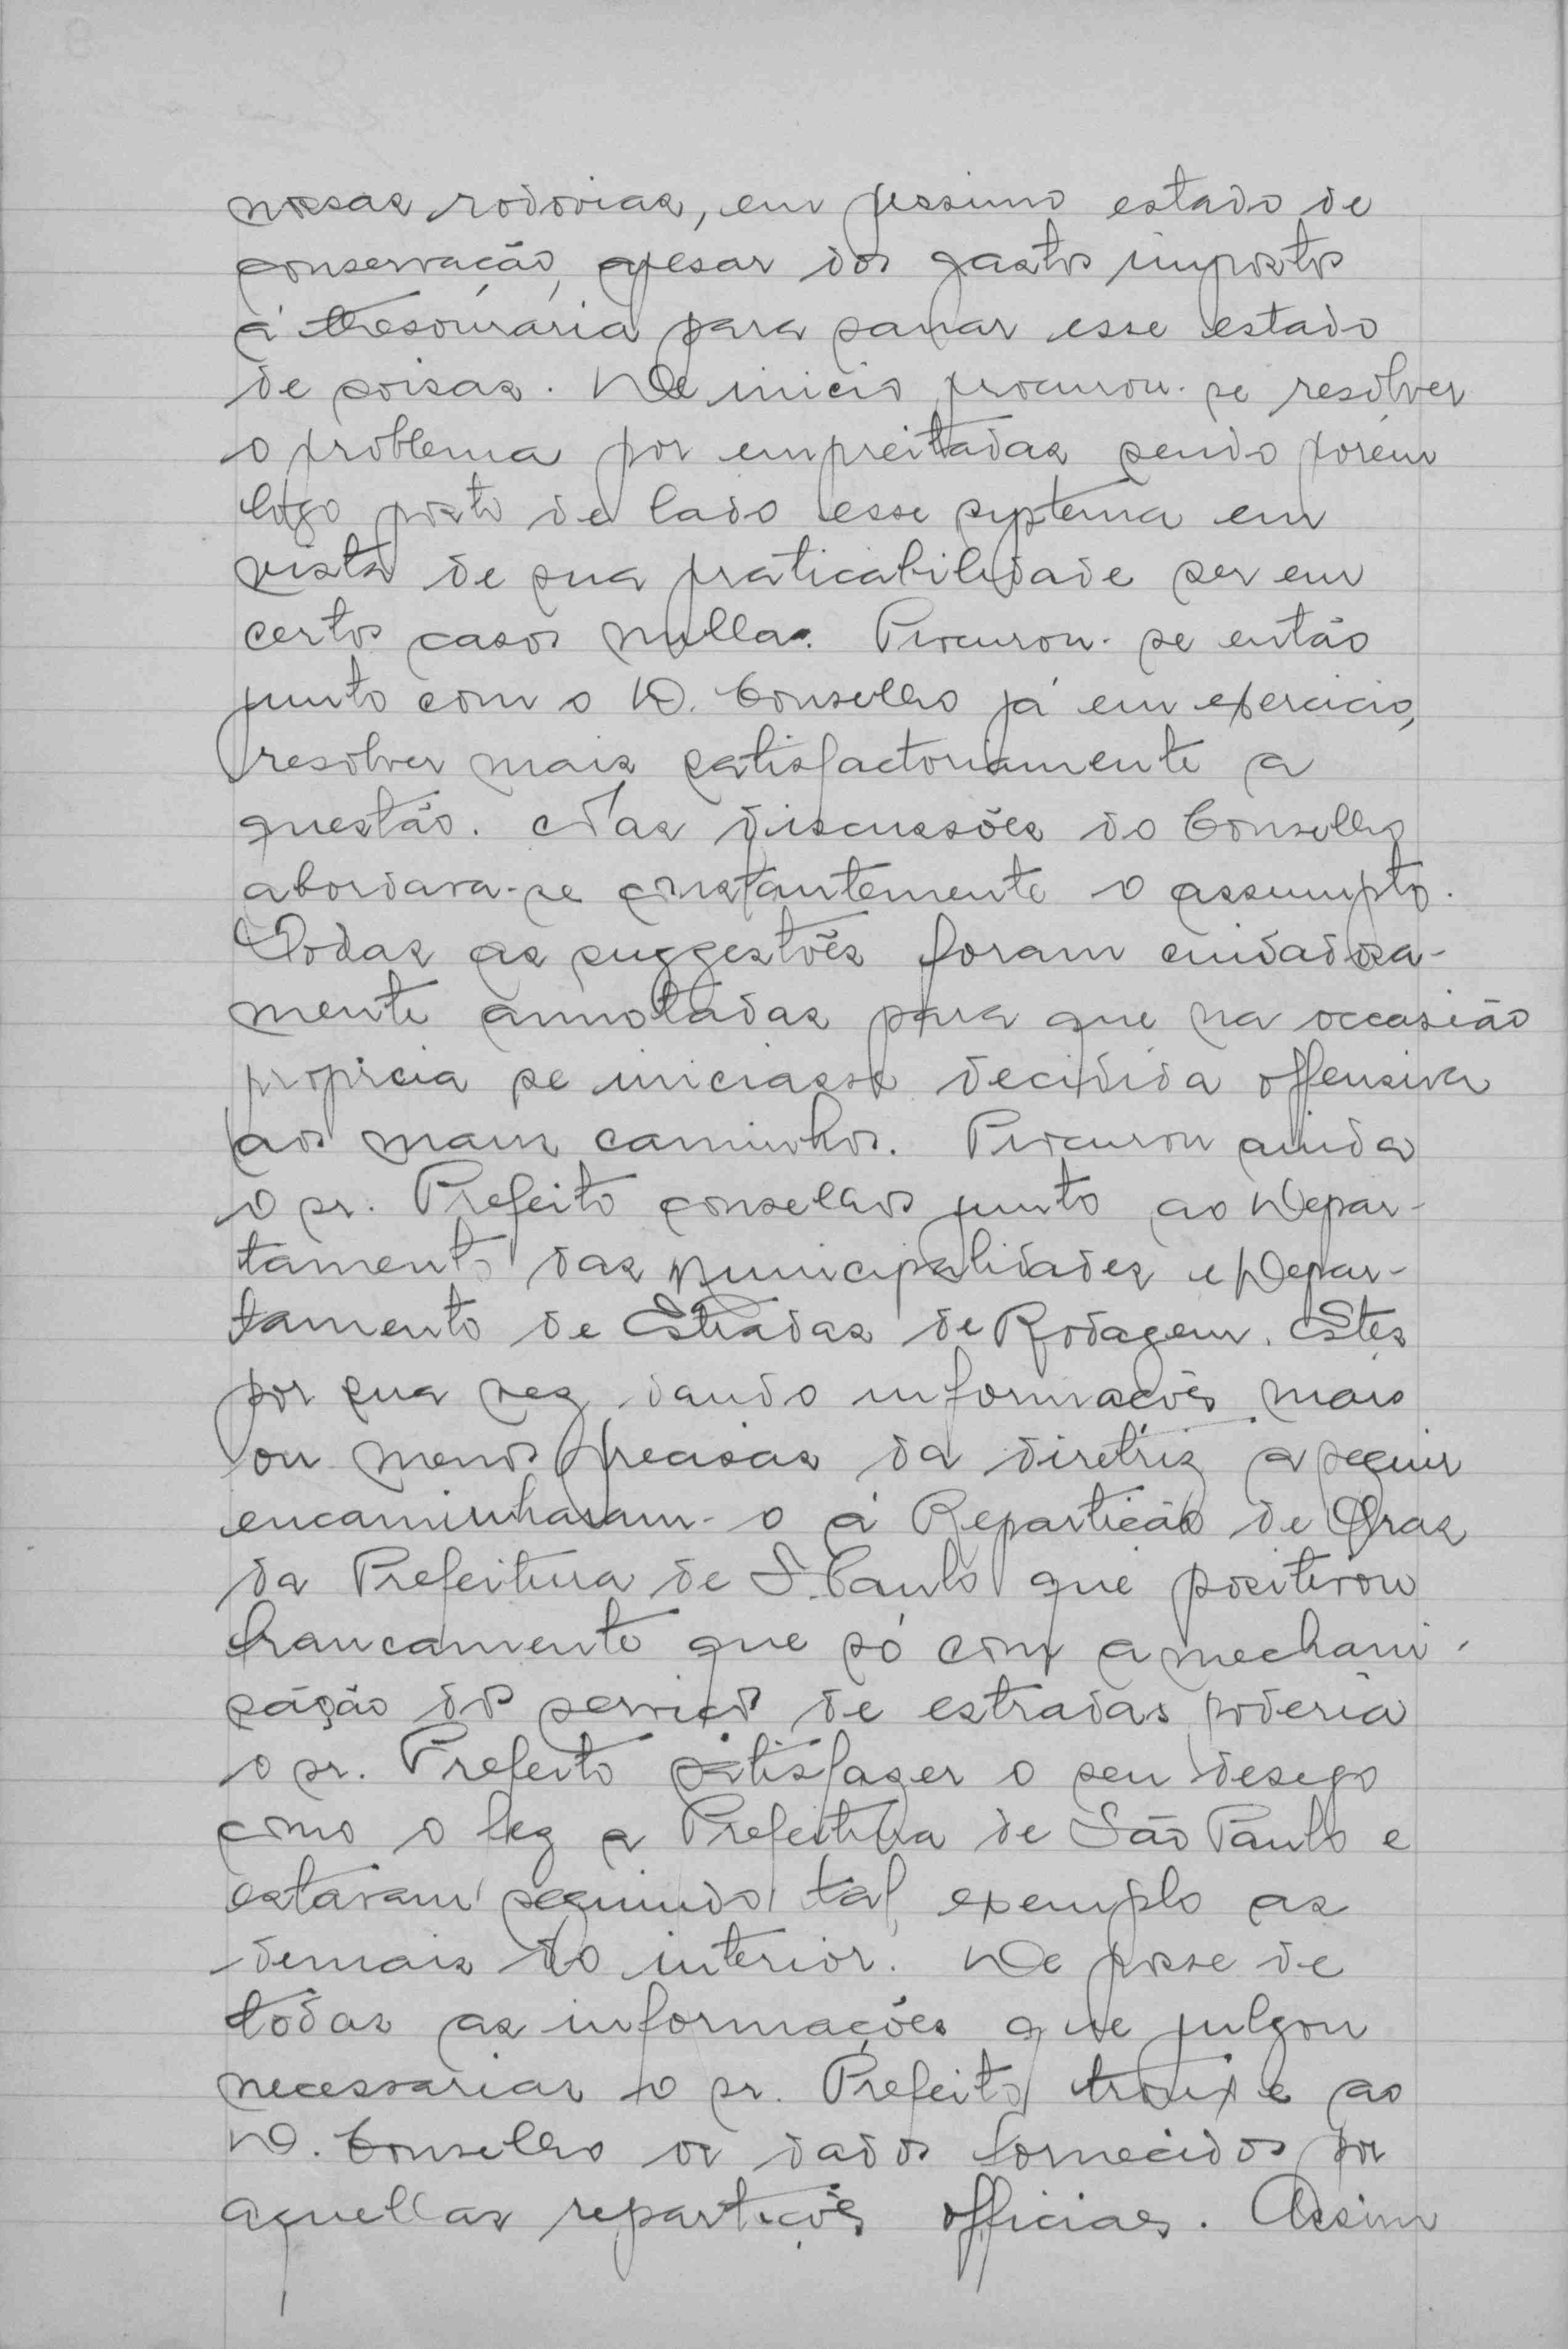 nossas rodovias, em pessimo estado de
conservação, apesar dos gastos impostos
á thesouraria para sanar esse estado
de coisas. De inicio procurou-se resolver
o problema por empreitadas sendo porém
logo posto de lado esse systema em
vista de sua praticabilidade ser em
certos casos nulla. Procurou-se então
junto com o D. Conselho já em exercicio,
resolver mais satisfactoriamente a
questão. Nas discussões do Conselho
abordava-se constantemente o assumpto.
Todas as suggestões foram cuidadosa-
mente annotadas para que na occasião
propicia se iniciasse decidida offensiva
aos maus caminhos. Procurou ainda
o sr. Prefeito conselhos junto ao Depar-
tamento das Municipalidades e Depar-
tamento de Estradas de Rodagem. Estes
por sua vez dando informações mais
ou menos precisas da diretriz a seguir
encaminharam-o á Repartição de Obras
da Prefeitura de S. Paulo que positivou
francamente que só com a mechani-
sáção do serviço de estradas poderia
o sr. Prefeito satisfazer o seu desejo
como o fez a Prefeitura de São Paulo e
estavam seguindo tal exemplo as
demais do interior. De posse de
todas as informações que julgou
necessarias o sr. Prefeito trouxe ao
D. Conselho os dados fornecidos por
aquellas repartições officiaes. Assim